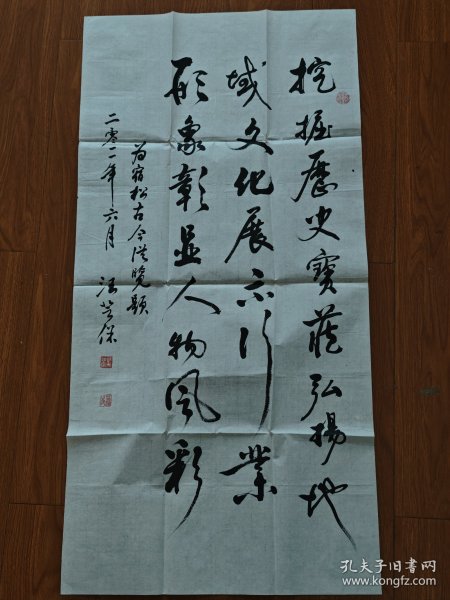 挖掘歷史寶藏弘揚地
域文化展示行業
形象彰显人物風彩
为宿松古今纵览题
二零一一年六月 汪芳保
孔夫子旧书网
www.kongfz.com